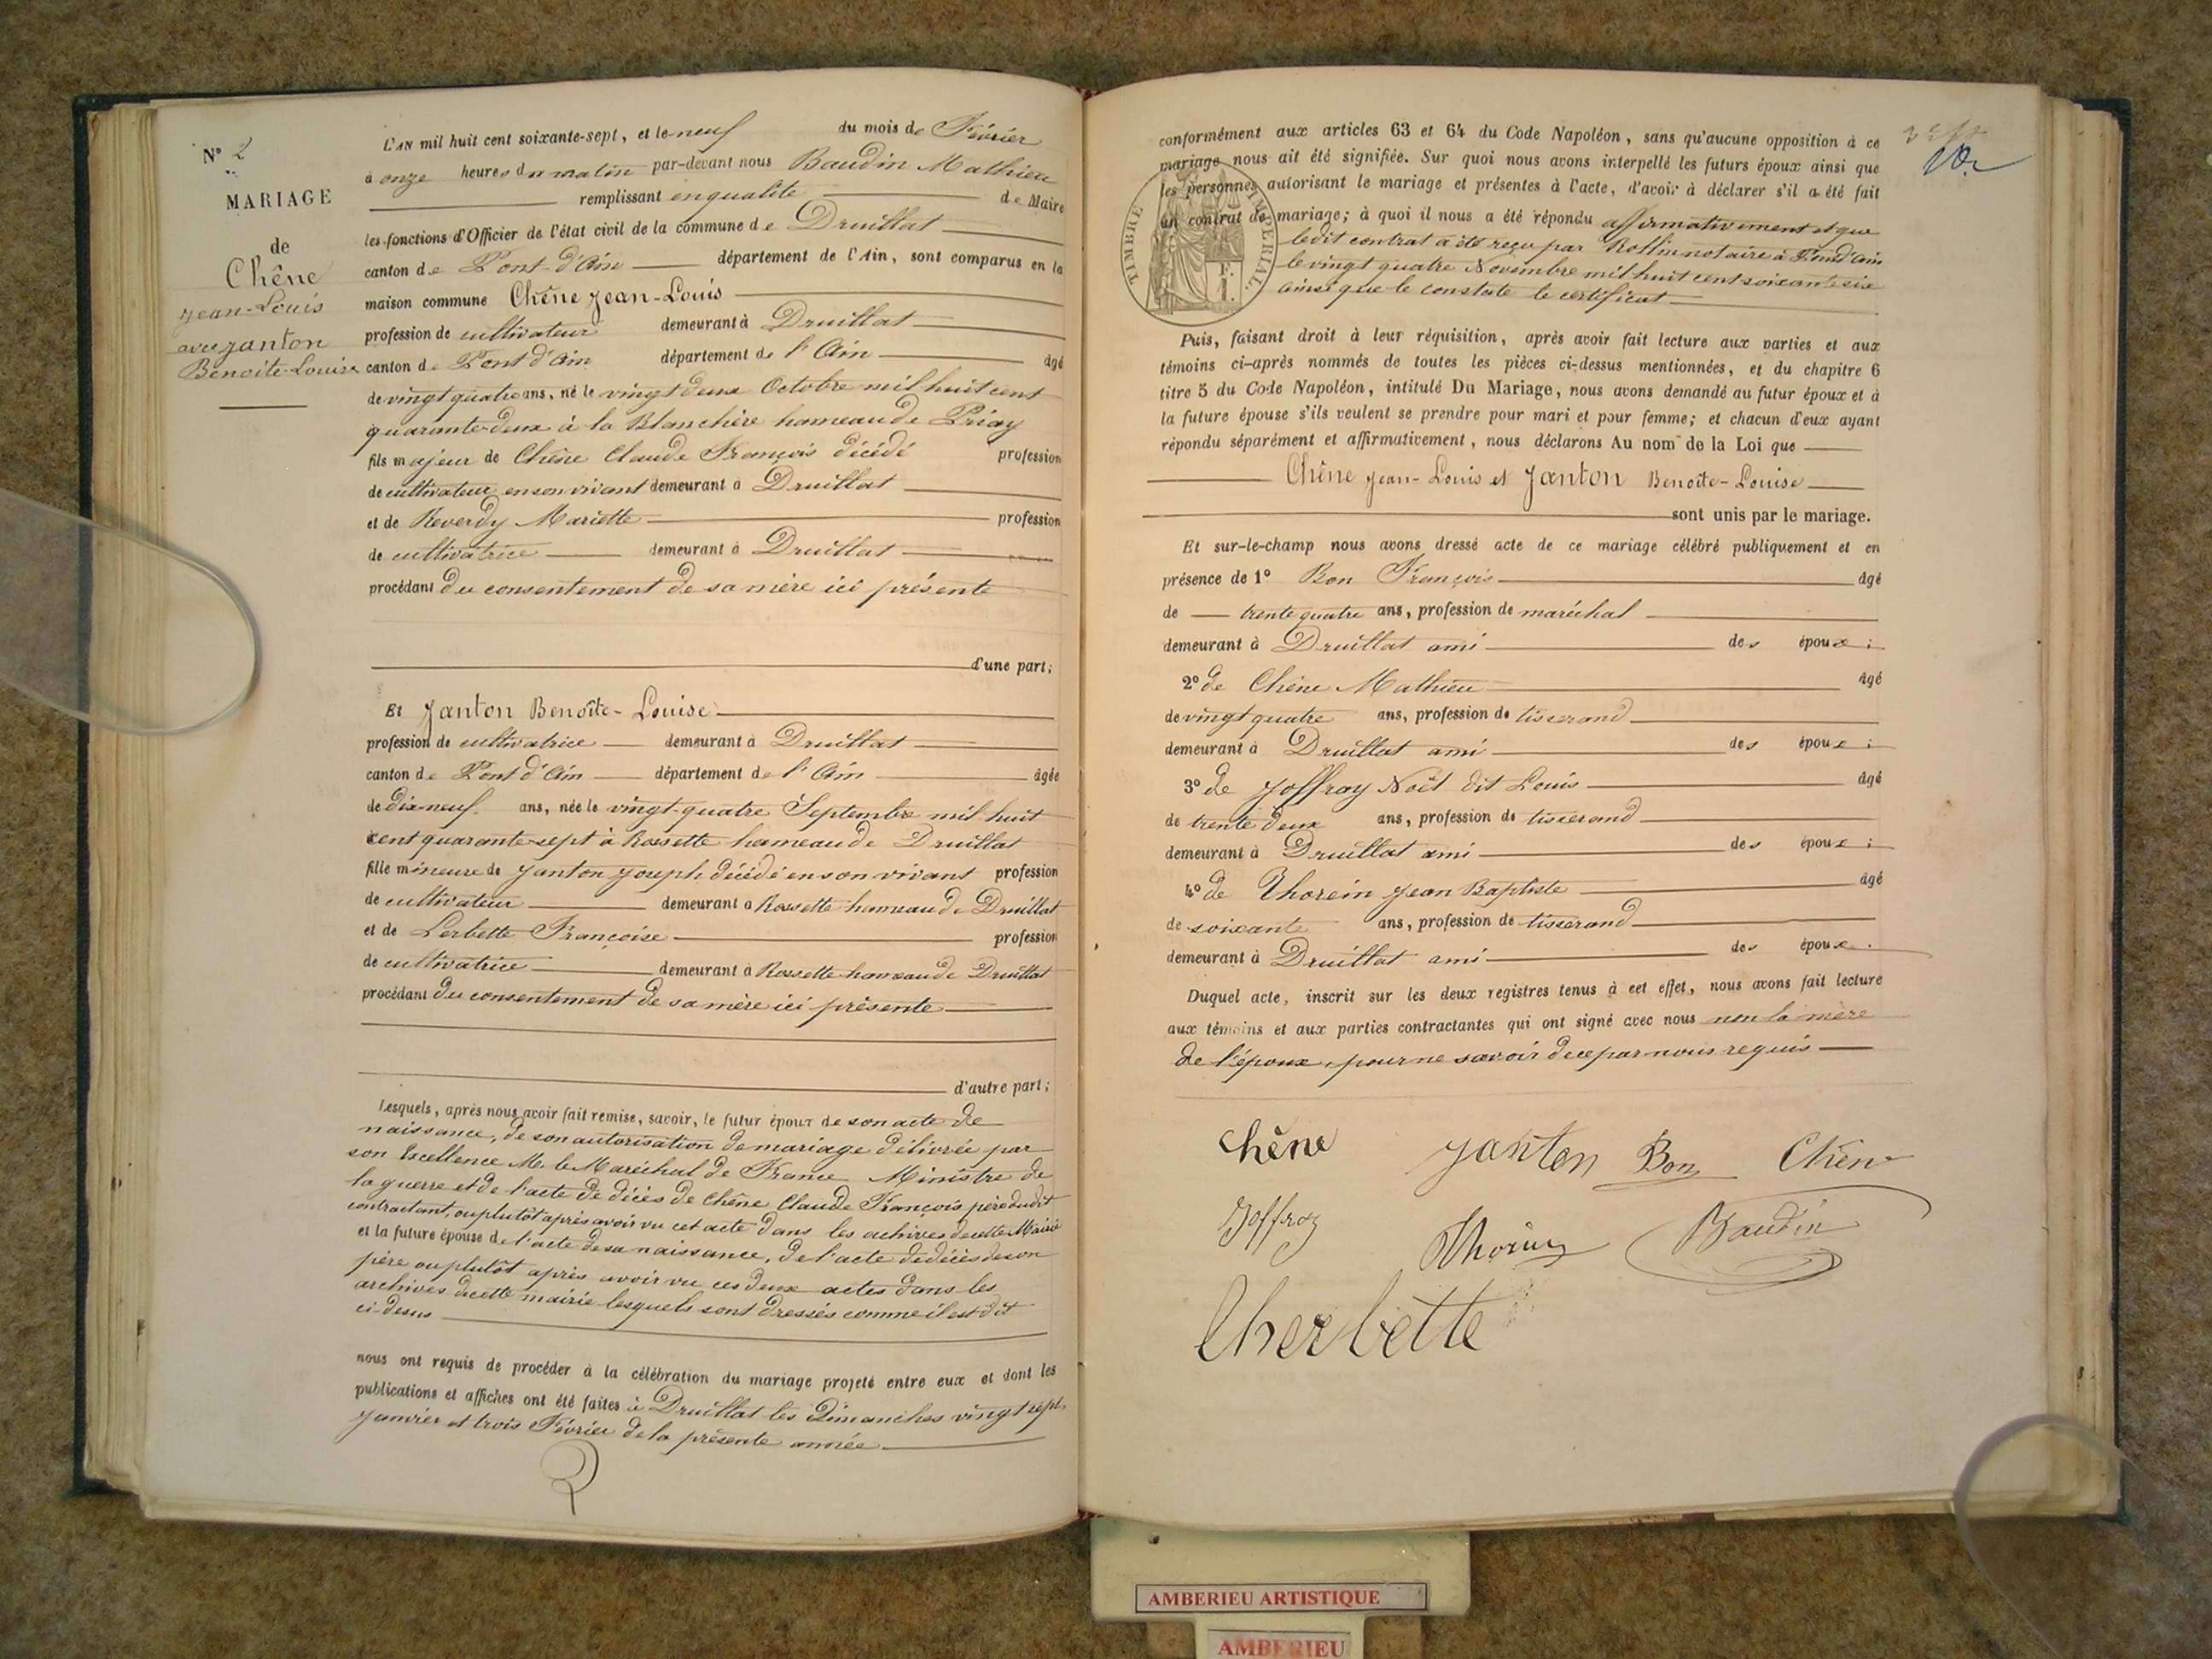 N° 2
MARIAGE
de
Chêne
Jean-Louis
avec Janton
Benoîte-Louise
L'AN mil huit cent soixante-sept, et le neuf du mois de Février
à onze heures du matin par-devant nous Baudin Mathieu
remplissant en qualité de Maire
les fonctions d'Officier de l'état civil de la commune de Druillat
canton de Pont-d'Ain département de l'Ain, sont comparus en la
maison commune Chêne Jean-Louis
profession de cultivateur demeurant à Druillat
canton de Pont d'Ain département de l'Ain âgé
de vingt quatre ans, né le vingt deux Octobre mil huit cent
quarante-deux à la Blanchère hameau de Priay
fils majeur de Chêne Claude François décédé profession
de cultivateur en son vivant demeurant à Druillat
et de Reverdy Mariette profession
de cultivatrice demeurant à Druillat
procédant du consentement de sa mère ici présente
d'une part;
Et Janton Benoîte-Louise
profession de cultivatrice demeurant à Druillat
canton de Pont d'Ain département de l'Ain âgée
de dix-neuf ans, née le vingt-quatre Septembre mil huit
cent quarante-sept à Rossette hameau de Druillat
fille mineure de Janton Joseph décédé en son vivant profession
de cultivateur demeurant à Rossette hameau de Druillat
et de Lerbette Françoise profession
de cultivatrice demeurant à Rossette hameau de Druillat
procédant du consentement de sa mère ici présente
d'autre part;
Lesquels, après nous avoir fait remise, savoir, le futur époux de son acte de
naissance, de son autorisation de mariage délivrée par
son Excellence M. le Maréchal de France Ministre de
la guerre et de l'acte de décès de Chêne Claude François père dudit
contractant, ou plutôt après avoir vu cet acte dans les archives de cette Mairie
et la future épouse de l'acte de sa naissance, de l'acte de décès de son
père ou plutôt après avoir vu ces deux actes dans les
archives de cette mairie lesquels sont dressés comme il est dit
ci-dessus
nous ont requis de procéder à la célébration du mariage projeté entre eux et dont les
publications et affiches ont été faites à Druillat les Dimanches vingt sept
Janvier et trois Février de la présente année
conformément aux articles 63 et 64 du Code Napoléon, sans qu'aucune opposition à ce
mariage nous ait été signifiée. Sur quoi nous avons interpellé les futurs époux ainsi que
les personnes autorisant le mariage et présentes à l'acte, d'avoir à déclarer s'il a été fait
un contrat de mariage; à quoi il nous a été répondu affirmativement et que
ledit contrat a été reçu par Rollin notaire à Pont d'Ain
le vingt quatre Novembre mil huit cent soixante six
ainsi que le constate le certificat
TIMBRE IMPERIAL
Puis, faisant droit à leur réquisition, après avoir fait lecture aux parties et aux
témoins ci-après nommés de toutes les pièces ci-dessus mentionnées, et du chapitre 6
titre 5 du Code Napoléon, intitulé Du Mariage, nous avons demandé au futur époux et à
la future épouse s'ils veulent se prendre pour mari et pour femme; et chacun d'eux ayant
répondu séparément et affirmativement, nous déclarons Au nom de la Loi que
Chêne Jean-Louis et Janton Benoîte-Louise
sont unis par le mariage.
Et sur-le-champ nous avons dressé acte de ce mariage célébré publiquement et en
présence de 1° Bon François âgé
de trente quatre ans, profession de maréchal
demeurant à Druillat ami des époux;
2° de Chêne Mathieu âgé
de vingt quatre ans, profession de tisserand
demeurant à Druillat ami des époux;
3° de Joffray Noël dit Louis âgé
de trente deux ans, profession de tisserand
demeurant à Druillat ami des époux;
4° de Thorein Jean Baptiste âgé
de soixante ans, profession de tisserand
demeurant à Druillat ami des époux.
Duquel acte, inscrit sur les deux registres tenus à cet effet, nous avons fait lecture
aux témoins et aux parties contractantes qui ont signé avec nous non la mère
de l'époux, pour ne savoir de ce par nous requis
chêne Janton Bon Chêne
Joffray Thorein Baudin
Cherbette
AMBERIEU ARTISTIQUE
AMBERIEU